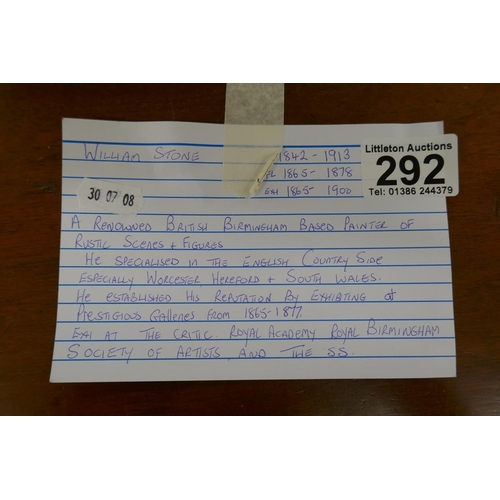 WILLIAM STONE 1842 - 1913
FL 1865 - 1878
EXH 1865 - 1900
Littleton Auctions
292
Tel: 01386 244379
30 07 08
A RENOWNED BRITISH BIRMINGHAM BASED PAINTER OF
RUSTIC SCENES + FIGURES
HE SPECIALISED IN THE ENGLISH COUNTRY SIDE
ESPECIALLY WORCESTER HEREFORD + SOUTH WALES.
HE ESTABLISHED HIS REPUTATION BY EXHIBITING at
PRESTIGIOUS GALLERIES FROM 1865-1877.
EXH AT THE CRITIC. ROYAL ACADEMY ROYAL BIRMINGHAM
SOCIETY OF ARTISTS AND THE SS.